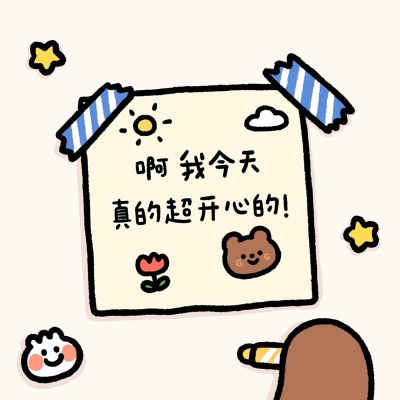 啊 我今天
真的超开心的!